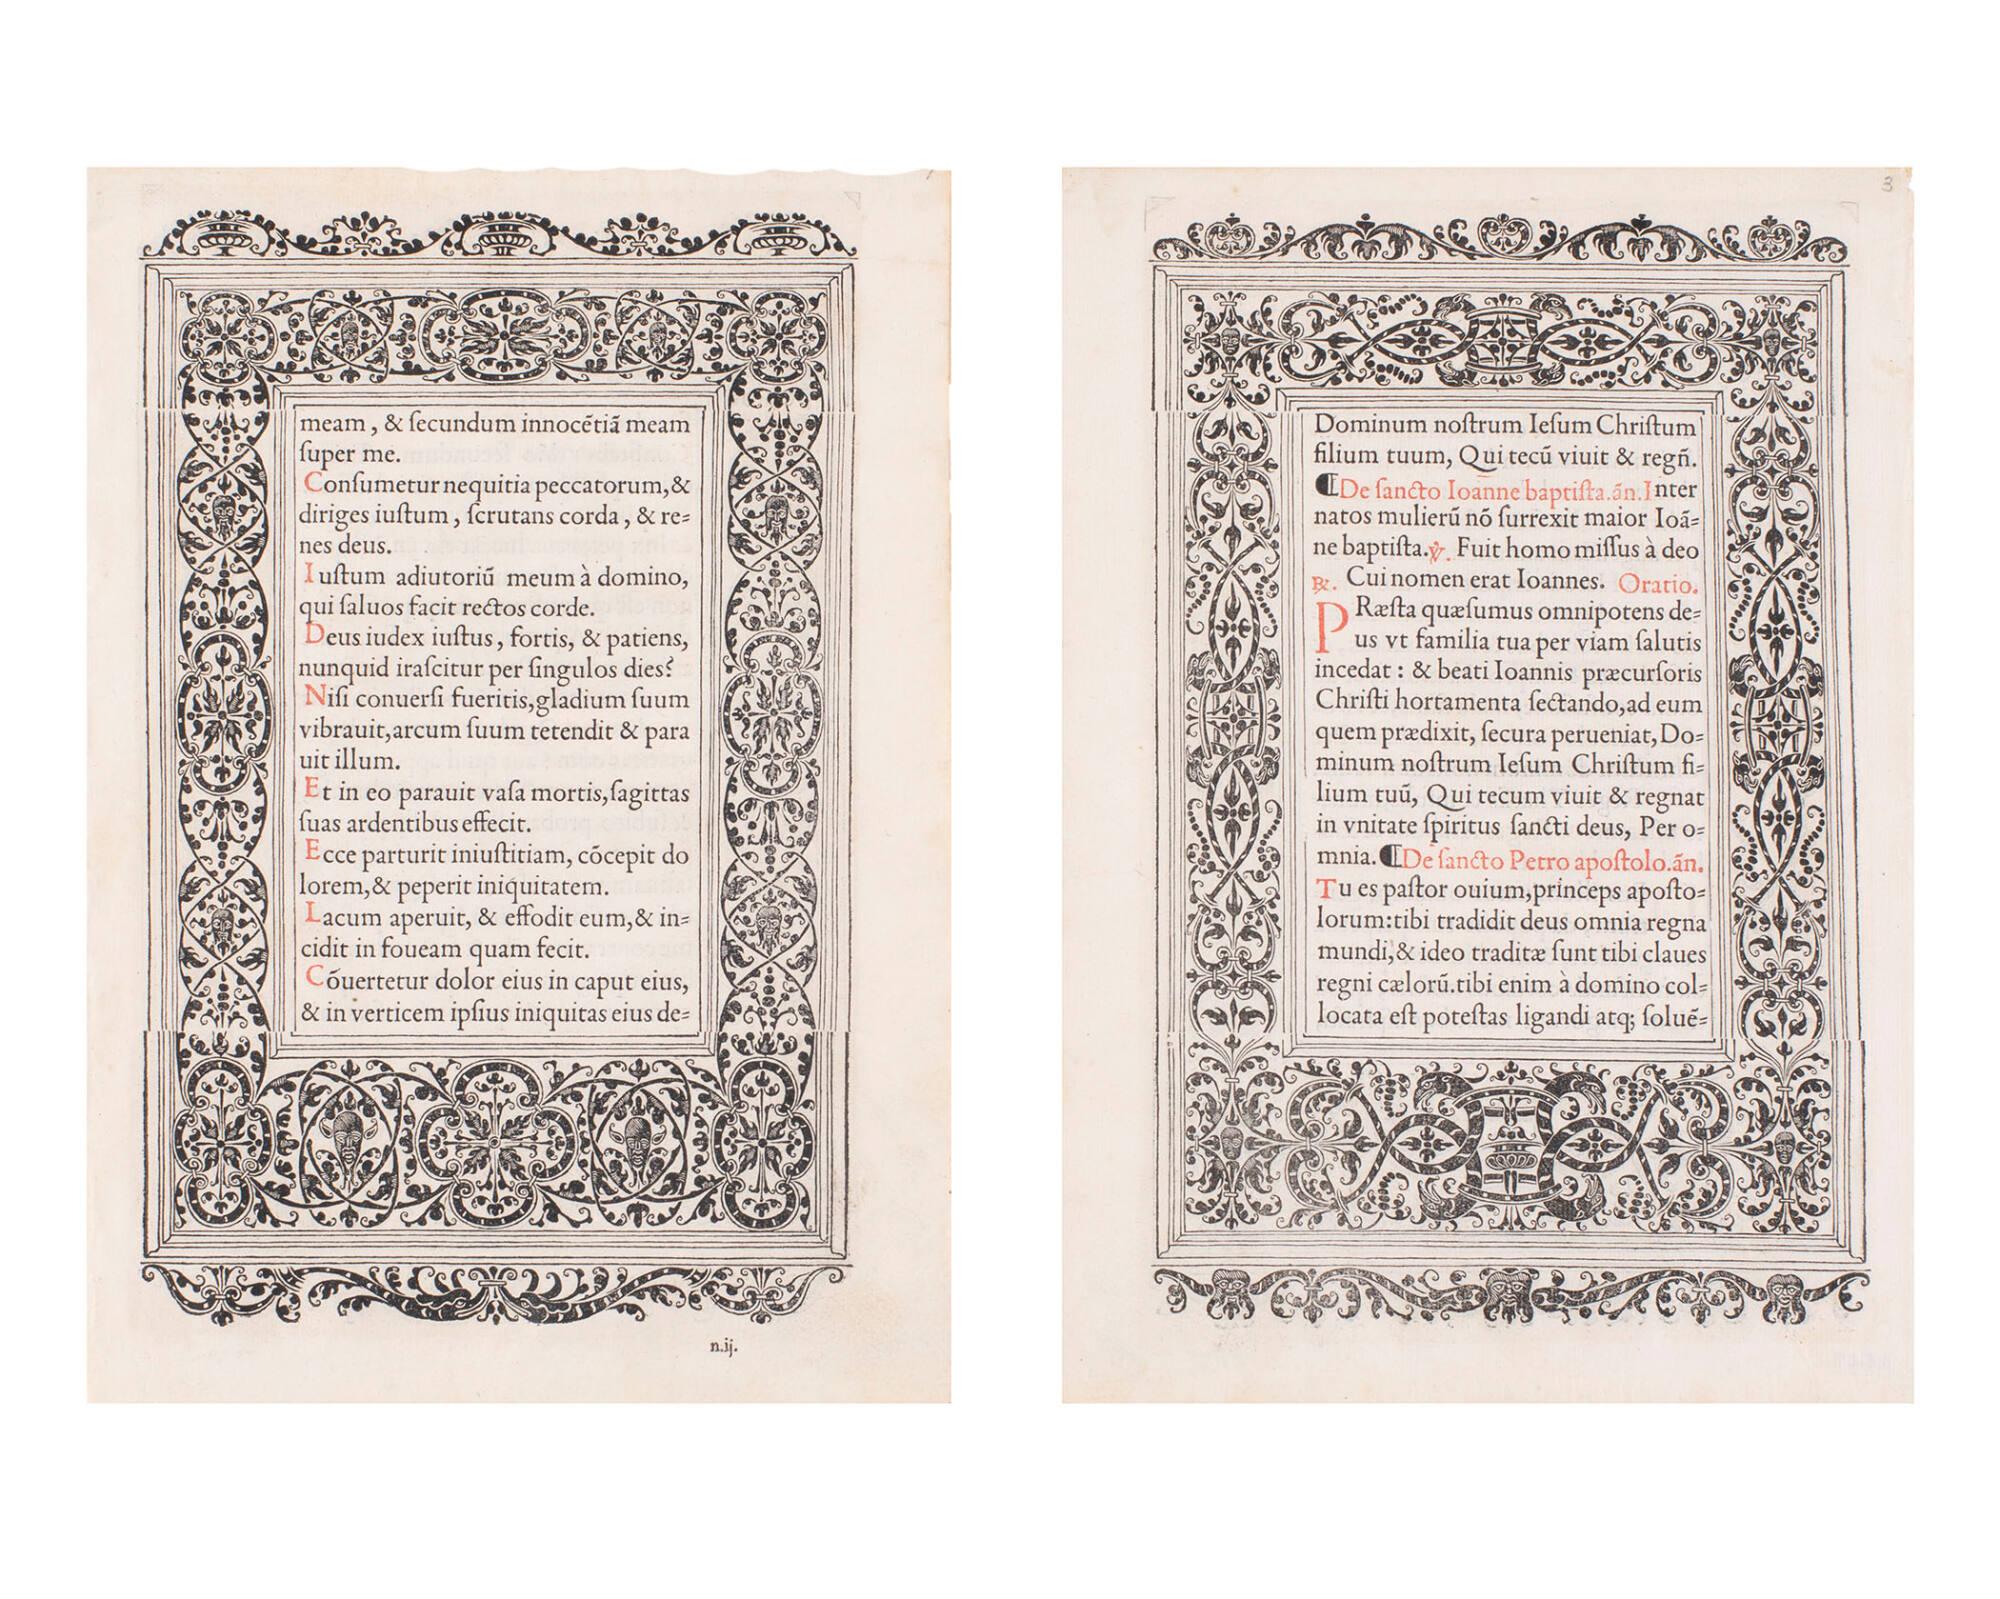 meam , & ſecundum innocẽtiã meam
ſuper me.
Conſumetur nequitia peccatorum,&
diriges iuſtum , ſcrutans corda , & re=
nes deus.
Iuſtum adiutoriũ meum à domino,
qui ſaluos facit rectos corde.
Deus iudex iuſtus, fortis, & patiens,
nunquid iraſcitur per ſingulos dies?
Niſi conuerſi fueritis,gladium ſuum
vibrauit,arcum ſuum tetendit & para
uit illum.
Et in eo parauit vaſa mortis,ſagittas
ſuas ardentibus effecit.
Ecce parturit iniuſtitiam, cõcepit do
lorem,& peperit iniquitatem.
Lacum aperuit, & effodit eum,& in=
cidit in foueam quam fecit.
Cõuertetur dolor eius in caput eius,
& in verticem ipſius iniquitas eius de=
n.ij.
3
Dominum noſtrum Ieſum Chriſtum
filium tuum, Qui tecũ viuit & regñ.
¶De ſancto Ioanne baptiſta.ãn.Inter
natos mulierũ nõ ſurrexit maior Ioã=
ne baptiſta.℣. Fuit homo miſſus à deo
℞. Cui nomen erat Ioannes. Oratio.
PRæſta quæſumus omnipotens de=
us vt familia tua per viam ſalutis
incedat : & beati Ioannis præcurſoris
Chriſti hortamenta ſectando,ad eum
quem prædixit, ſecura perueniat, Do=
minum noſtrum Ieſum Chriſtum fi=
lium tuũ, Qui tecum viuit & regnat
in vnitate ſpiritus ſancti deus, Per o=
mnia. ¶De ſancto Petro apoſtolo.ãn.
Tu es paſtor ouium,princeps apoſto=
lorum:tibi tradidit deus omnia regna
mundi,& ideo traditæ ſunt tibi claues
regni cælorũ.tibi enim à domino col=
locata eſt poteſtas ligandi atq; ſoluẽ=